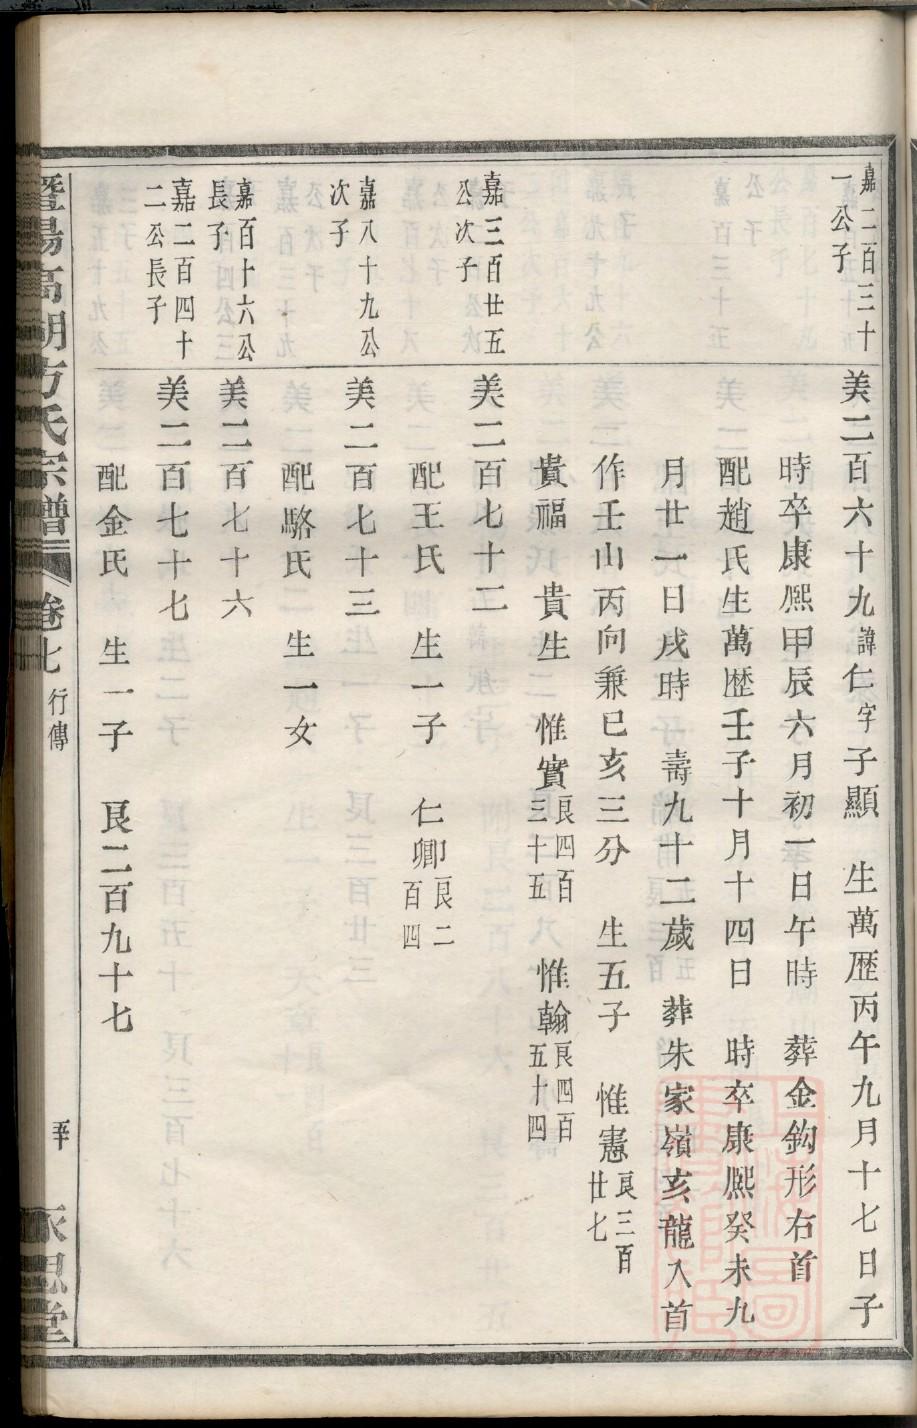 嘉二百三十一公子
美二百六十九諱仁字子顯 生萬歷丙午九月十七日子
時卒康熙甲辰六月初一日午時 葬金鈎形右首
配趙氏生萬歷壬子十月十四日 時卒康熙癸未九
月廿一日戌時 壽九十二歲 葬朱家嶺亥龍入首
作壬山丙向兼巳亥三分 生五子 惟憲艮三百廿七
貴福 貴生 惟實艮四百三十五 惟翰艮四百五十四
嘉三百廿五公次子
美二百七十二
配王氏 生一子 仁卿卽艮二百四
嘉八十九公次子
美二百七十三
配駱氏 生一女
嘉百十六公長子
美二百七十六
嘉二百四十二公長子
美二百七十七
配金氏 生一子 艮二百九十七
暨陽高湖方氏宗譜 卷七 行傳 永思堂